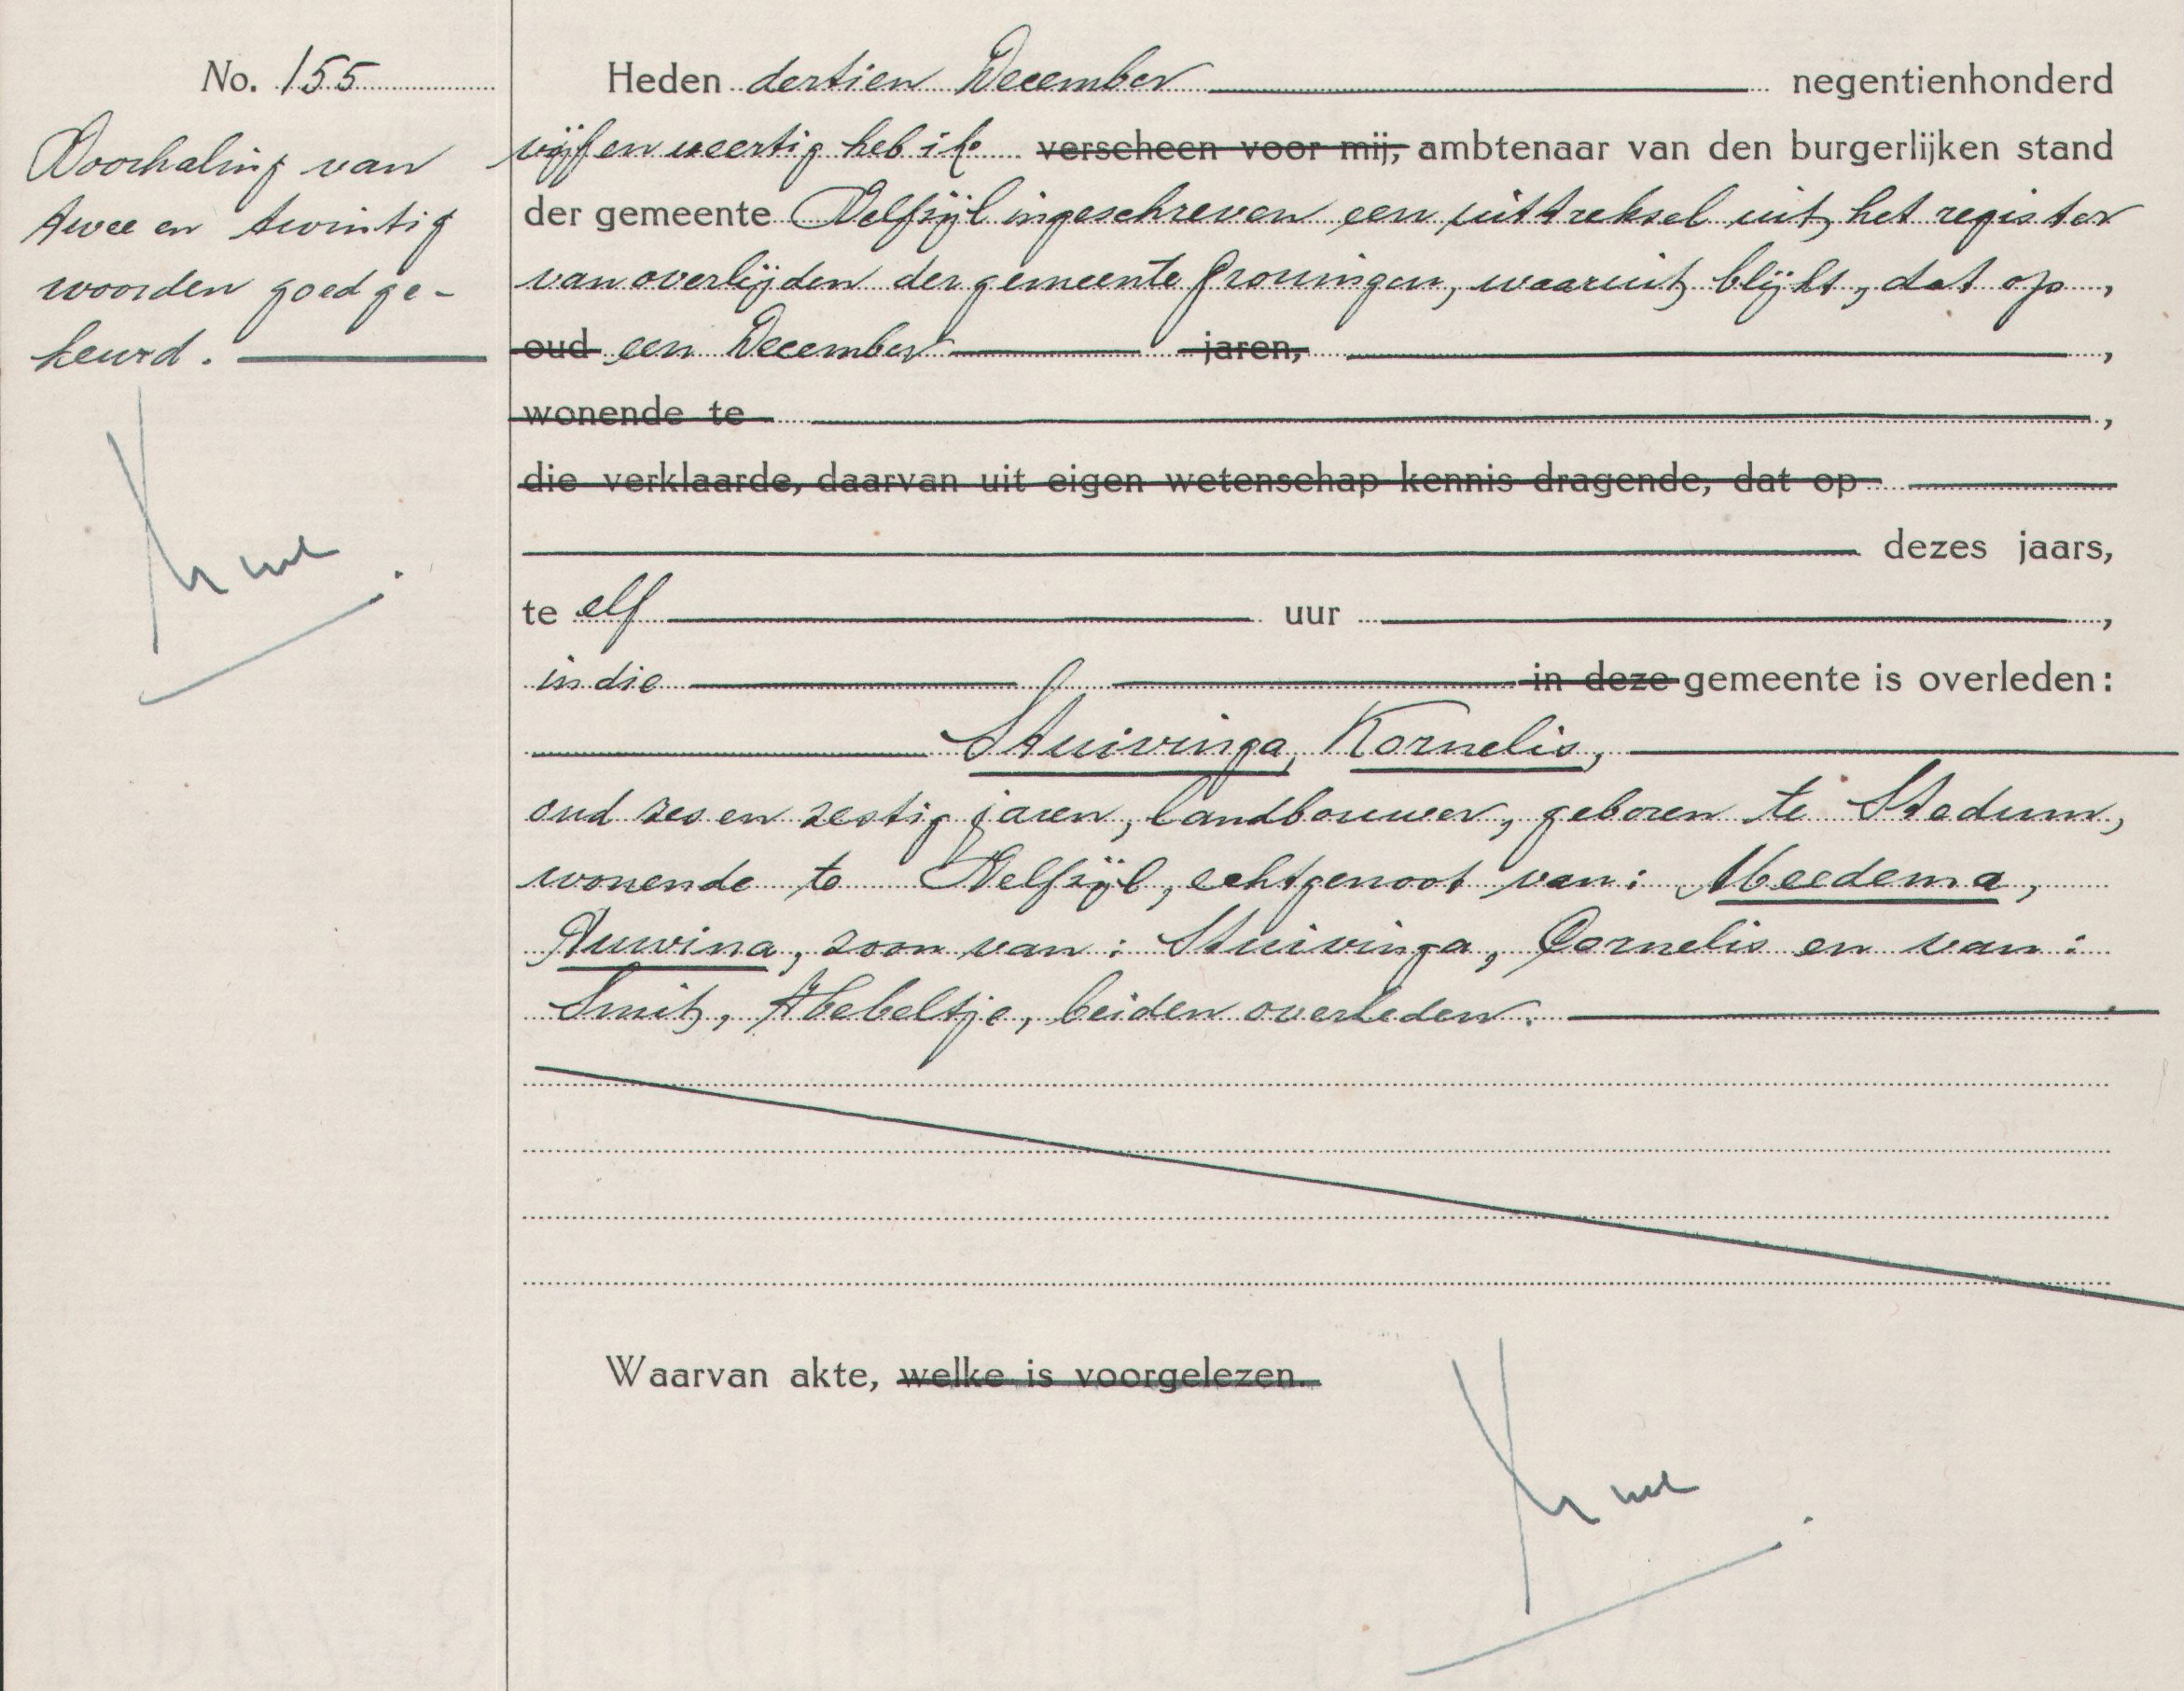 No. 155
Doorhaling van
twee en twintig
woorden goedge-
keurd.
Heden dertien December negentienhonderd
vijf en veertig heb ik verscheen voor mij, ambtenaar van den burgerlijken stand
der gemeente Delfzijl ingeschreven een uittreksel uit het register
van overlijden der gemeente Groningen, waaruit blijkt, dat op,
oud een December jaren,,
wonende te,
die verklaarde, daarvan uit eigen wetenschap kennis dragende, dat op
dezes jaars,
te elf uur,
in die in deze gemeente is overleden:
Stuivinga, Kornelis,
oud zes en zestig jaren, landbouwer, geboren te Stedum,
wonende te Delfzijl, echtgenoot van: Meedema,
Auwina, zoon van: Stuivinga, Cornelis en van:
Smit, Hebeltje, beiden overleden.
Waarvan akte, welke is voorgelezen.